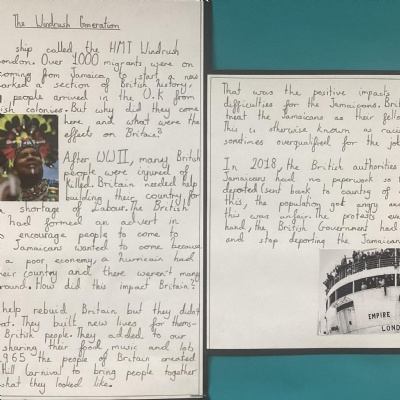 The Windrush Generation
ship called the HMT Windrush
ondon. Over 1000 migrants were on
coming from Jamaica, to start a new
arked a section of British history,
g people arrived in the U.K from
ish colonies. But why did they come
here and what were the
effects on Britain?
After WWII, many British
people were injured or
killed. Britain needed help
building their country for
a shortage of Labour. the British
had formed an advert in
o encourage people to come to
Jamaicans wanted to come because
a poor economy, a hurricain had
heir country and there weren't many
round. How did this impact Britain?
help rebuid Britain but they didn't
at. They built new lives for them-
British people. They added to our
sharing their food, music and lots
1965 the people of Britain created
Hill Carnival to bring people together
what they looked like.
That was the positive impacts
difficulties for the Jamaicans. Brit
treat the Jamaicans as their fell
This is otherwise known as racis
sometimes overqualified for the jo
In 2018, the British authorities
Jamaicans had no paperwork so
deported (sent back to country of
this, the population got angry and
this was unfair. The protests eve
hand, the British Government had
and stop deporting the Jamaican
EMPIRE
LOND